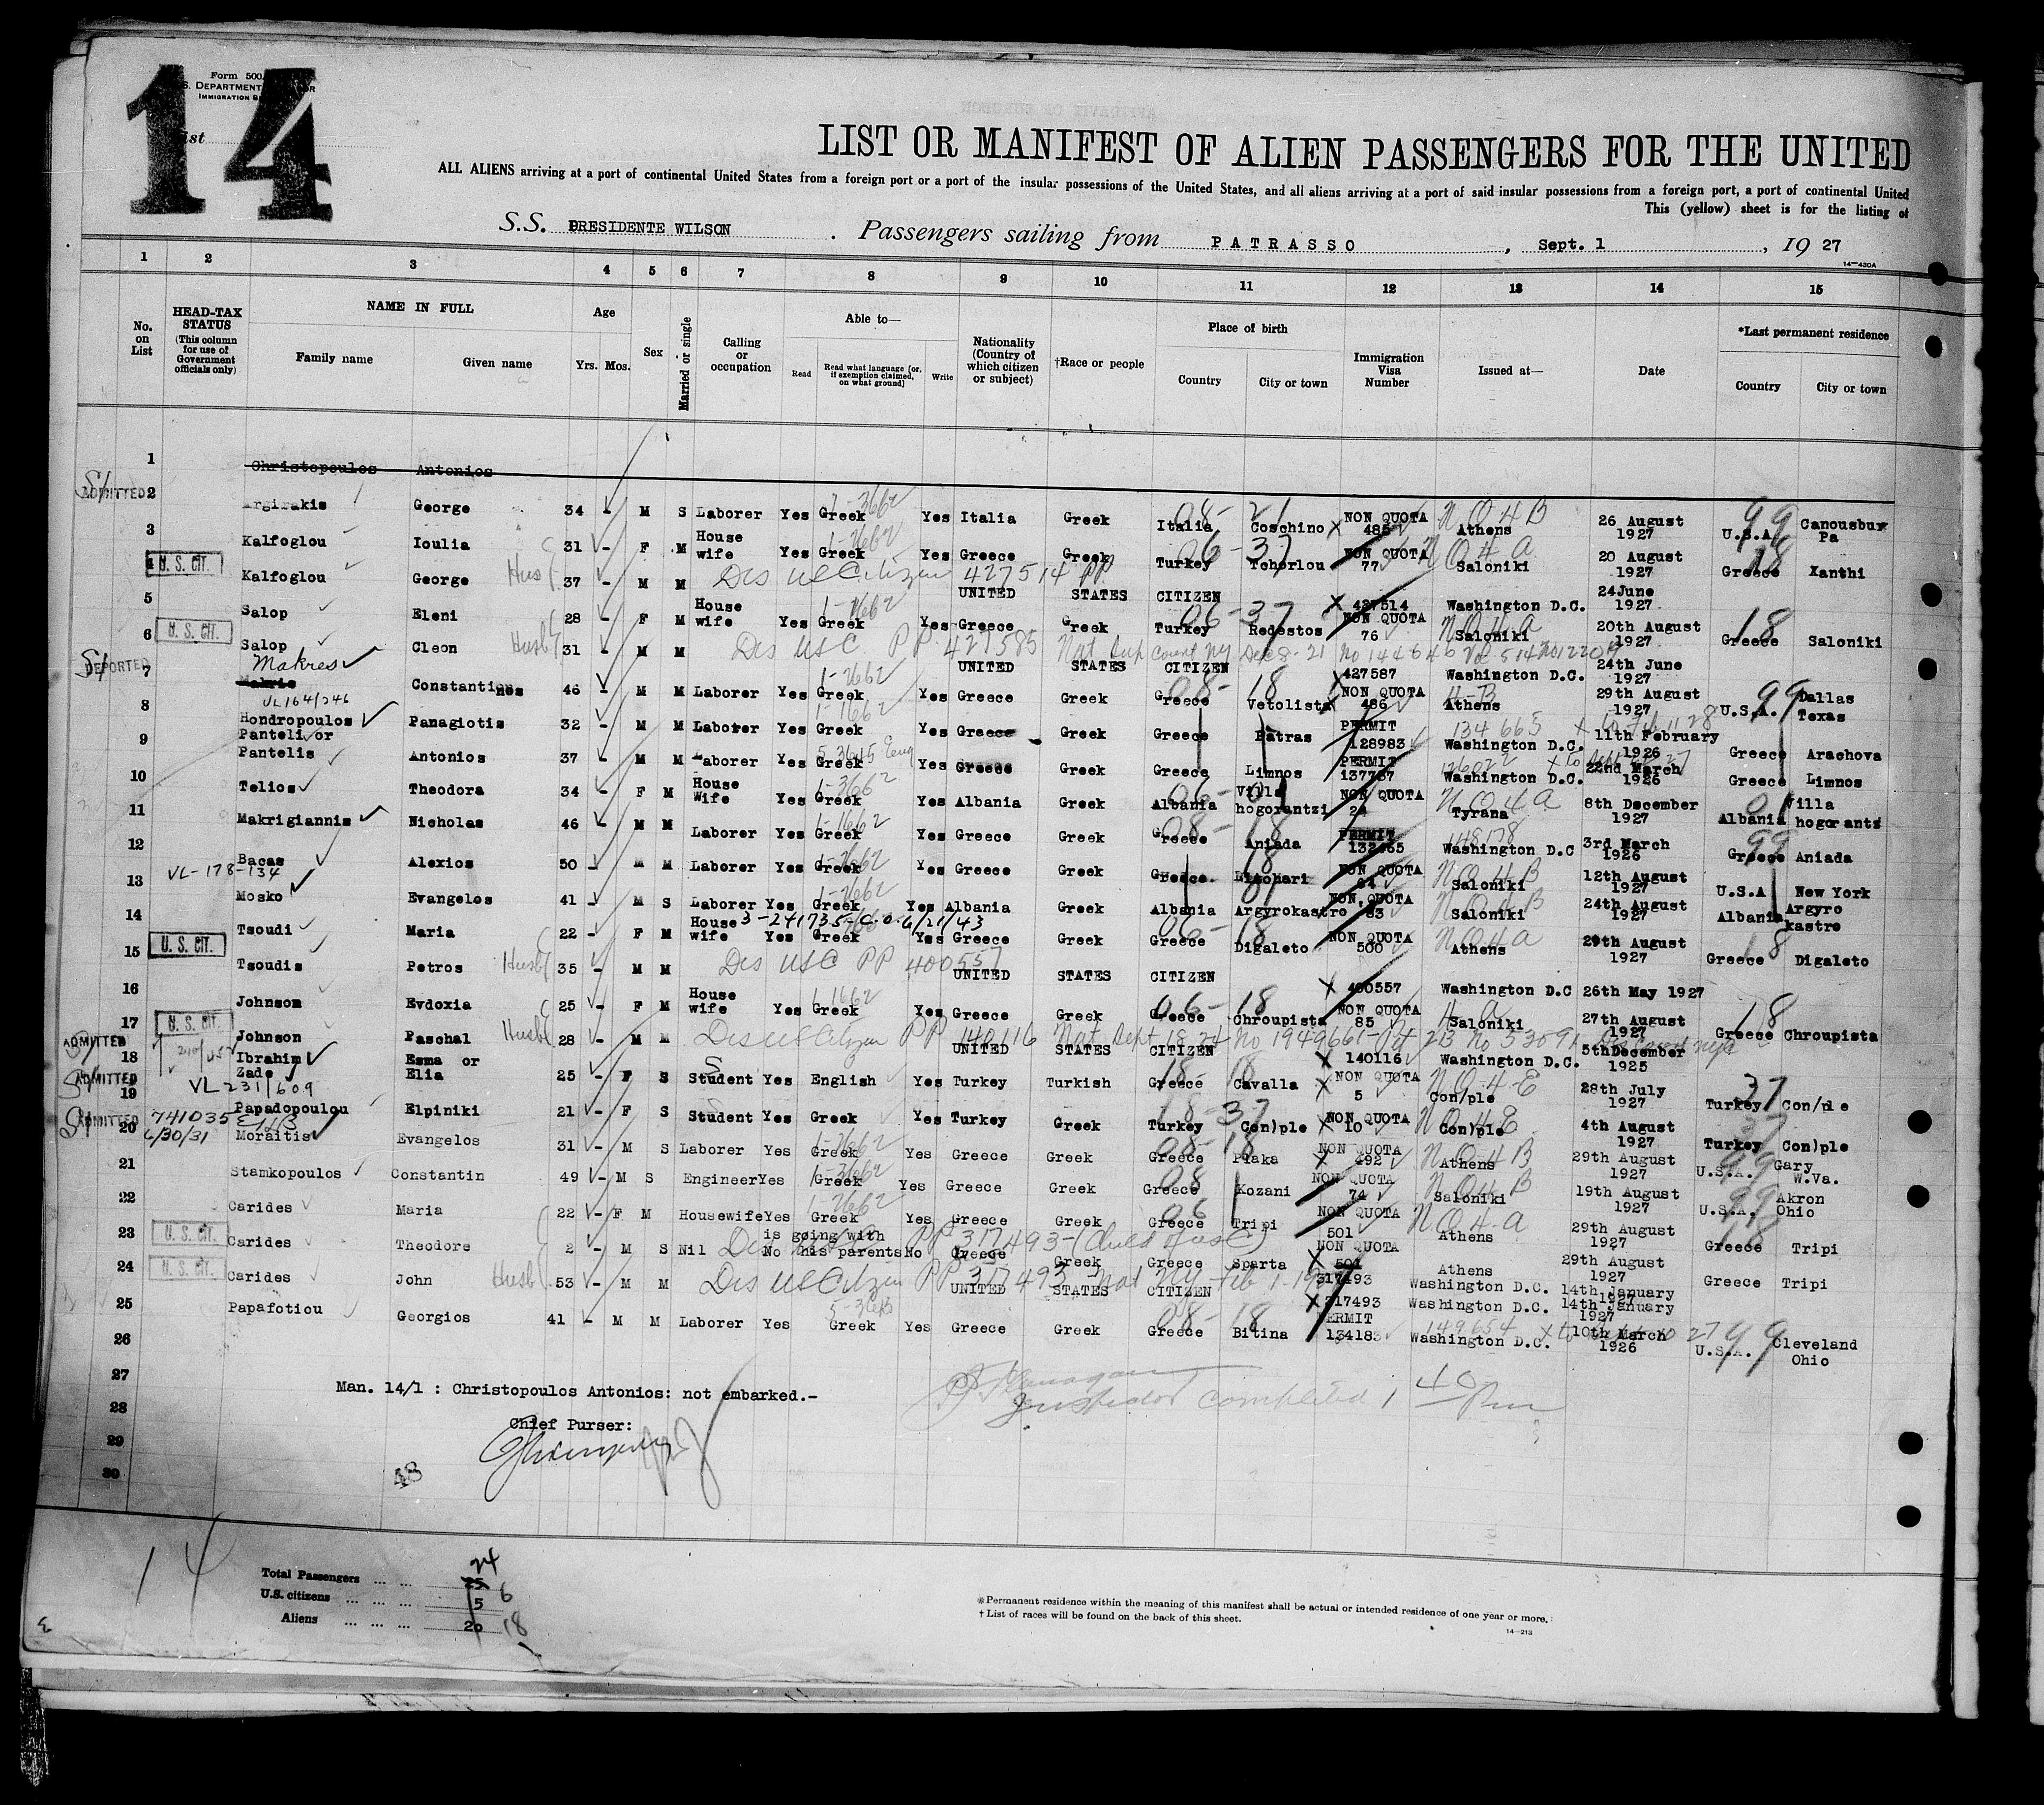 14
Form 500
S. DEPARTMENT
IMMIGRATION
LIST OR MANIFEST OF ALIEN PASSENGERS FOR THE UNITED
ALL ALIENS arriving at a port of continental United States from a foreign port or a port of the insular possessions of the United States, and all aliens arriving at a port of said insular possessions from a foreign port, a port of continental United
This (yellow) sheet is for the listing of
S.S. PRESIDENTE WILSON. Passengers sailing from PATRASSO, Sept. 1, 1927
14—430A
1 2 3 4 5 6 7 8 9 10 11 12 13 14 15
No. on List
HEAD-TAX STATUS (This column for use of Government officials only)
NAME IN FULL Family name Given name
Age Yrs. Mos.
Sex
Married or single
Calling or occupation
Able to— Read Read what language [or, if exemption claimed, on what ground] Write
Nationality (Country of which citizen or subject)
†Race or people
Place of birth Country City or town
Immigration Visa Number
Issued at—
Date
*Last permanent residence Country City or town
1 Christopoulos Antonios
ADMITTED 2 Argirakis George 34 - M S Laborer Yes Greek Yes Italia Greek Italia Coschino NON QUOTA 485 Athens 26 August 1927 U.S.A. Canousburg Pa
3 Kalfoglou Ioulia 31 - F M House wife Yes Greek Yes Greece Greek Turkey Tchorlou NON QUOTA 77 Saloniki 20 August 1927 Greece Xanthi
U. S. CIT. 4 Kalfoglou George Husb 37 - M M Dis US Citizen 427514 PP UNITED STATES CITIZEN 427514 Washington D.C. 24June 1927
5 Salop Eleni 28 - F M House wife Yes Greek Yes Greece Greek Turkey Redestos NON QUOTA 76 Saloniki 20th August 1927 Greece Saloniki
U. S. CIT. 6 Salop Cleon Husb 31 M M Dis USC PP 427585 UNITED STATES CITIZEN 427587 Washington D.C. 24th June 1927
DEPORTED 7 Makres Makris Constantinos 46 - M M Laborer Yes Greek Yes Greece Greek Greece Vetolista NON QUOTA 486 Athens 29th August 1927 U.S.A. Dallas Texas
VL164/246
8 Hondropoulos Panagiotis 32 - M M Laborer Yes Greek Yes Greece Greek Greece Patras PERMIT 128983 Washington D.C. 11th February 1926 Greece Arachova
9 Panteli or Pantelis Antonios 37 - M M Laborer Yes Greek Yes Greece Greek Greece Limnos PERMIT 137767 Washington D.C. 22nd March 1926 Greece Limnos
10 Telios Theodora 34 - F M House Wife Yes Greek Yes Albania Greek Albania Villa hogorantzi NON QUOTA 24 Tyrana 8th December 1927 Albania Villa hogorants
11 Makrigiannis Nicholas 46 - M M Laborer Yes Greek Yes Greece Greek Greece Aniada PERMIT 132465 Washington D.C 3rd March 1926 Greece Aniada
12 Bacas Alexios 50 - M M Laborer Yes Greek Yes Greece Greek Greece NON QUOTA Saloniki 12th August 1927 U.S.A New York
VL-178-134
13 Mosko Evangelos 41 - M S Laborer Yes Greek Yes Albania Greek Albania Argyrokastro NON QUOTA 83 Saloniki 24th August 1927 Albania Argyro kastro
3-241735 6/21/43
14 Tsoudi Maria 22 - F M House wife Yes Greek Yes Greece Greek Greece Digaleto NON QUOTA 500 Athens 29th August 1927 Greece Digaleto
U. S. CIT. 15 Tsoudis Petros Husb 35 - M M Dis USC PP 400557 UNITED STATES CITIZEN 400557 Washington D.C 26th May 1927
16 Johnson Evdoxia 25 - F M House wife Yes Greek Yes Greece Greek Greece Chroupista NON QUOTA 85 Saloniki 27th August 1927 Greece Chroupista
U. S. CIT. 17 Johnson Paschal Husb 28 - M M Dis US Citizen PP 140116 UNITED STATES CITIZEN 140116 Washington D.C. 5thDecember 1925
ADMITTED 18 Ibrahim Zade Esma or Elia 25 - F S Student Yes English Yes Turkey Turkish Greece Cavalla NON QUOTA 5 Con/ple 28th July 1927 Turkey Con/ple
VL231/609
ADMITTED 19 Papadopoulou Elpiniki 21 - F S Student Yes Greek Yes Turkey Greek Turkey Con)ple NON QUOTA 10 Con)ple 4th August 1927 Turkey Con)ple
741035 6/30/31
ADMITTED 20 Moraitis Evangelos 31 - M S Laborer Yes Greek Yes Greece Greek Greece Plaka NON QUOTA 492 Athens 29th August 1927 U.S.A. Gary W.Va.
21 Stamkopoulos Constantin 49 - M S Engineer Yes Greek Yes Greece Greek Greece Kozani NON QUOTA 74 Saloniki 19th August 1927 U.S.A. Akron Ohio
22 Carides Maria 22 - F M Housewife Yes Greek Yes Greece Greek Greece Tripi NON QUOTA 501 Athens 29th August 1927 Greece Tripi
U. S. CIT. 23 Carides Theodore 2 - M S Nil No is going with his parents No Greece Greek Greece Sparta NON QUOTA 501 317493 Athens Washington D.C. 29th August 1927 14th January 1927 Greece Tripi
U. S. CIT. 24 Carides John Husb 53 - M M Dis US Citizen PP 317493 UNITED STATES CITIZEN 317493 Washington D.C. 14th January 1927
25 Papafotiou Georgios 41 - M M Laborer Yes Greek Yes Greece Greek Greece Bitina PERMIT 134183 Washington D.C. 10th March 1926 U.S.A. Cleveland Ohio
26
27 Man. 14/1 : Christopoulos Antonios: not embarked.-
28 Chief Purser:
29
30
48
14
Total Passengers 25 24
U.S. citizens 5 6
Aliens 20 18
*Permanent residence within the meaning of this manifest shall be actual or intended residence of one year or more.
† List of races will be found on the back of this sheet.
14—213